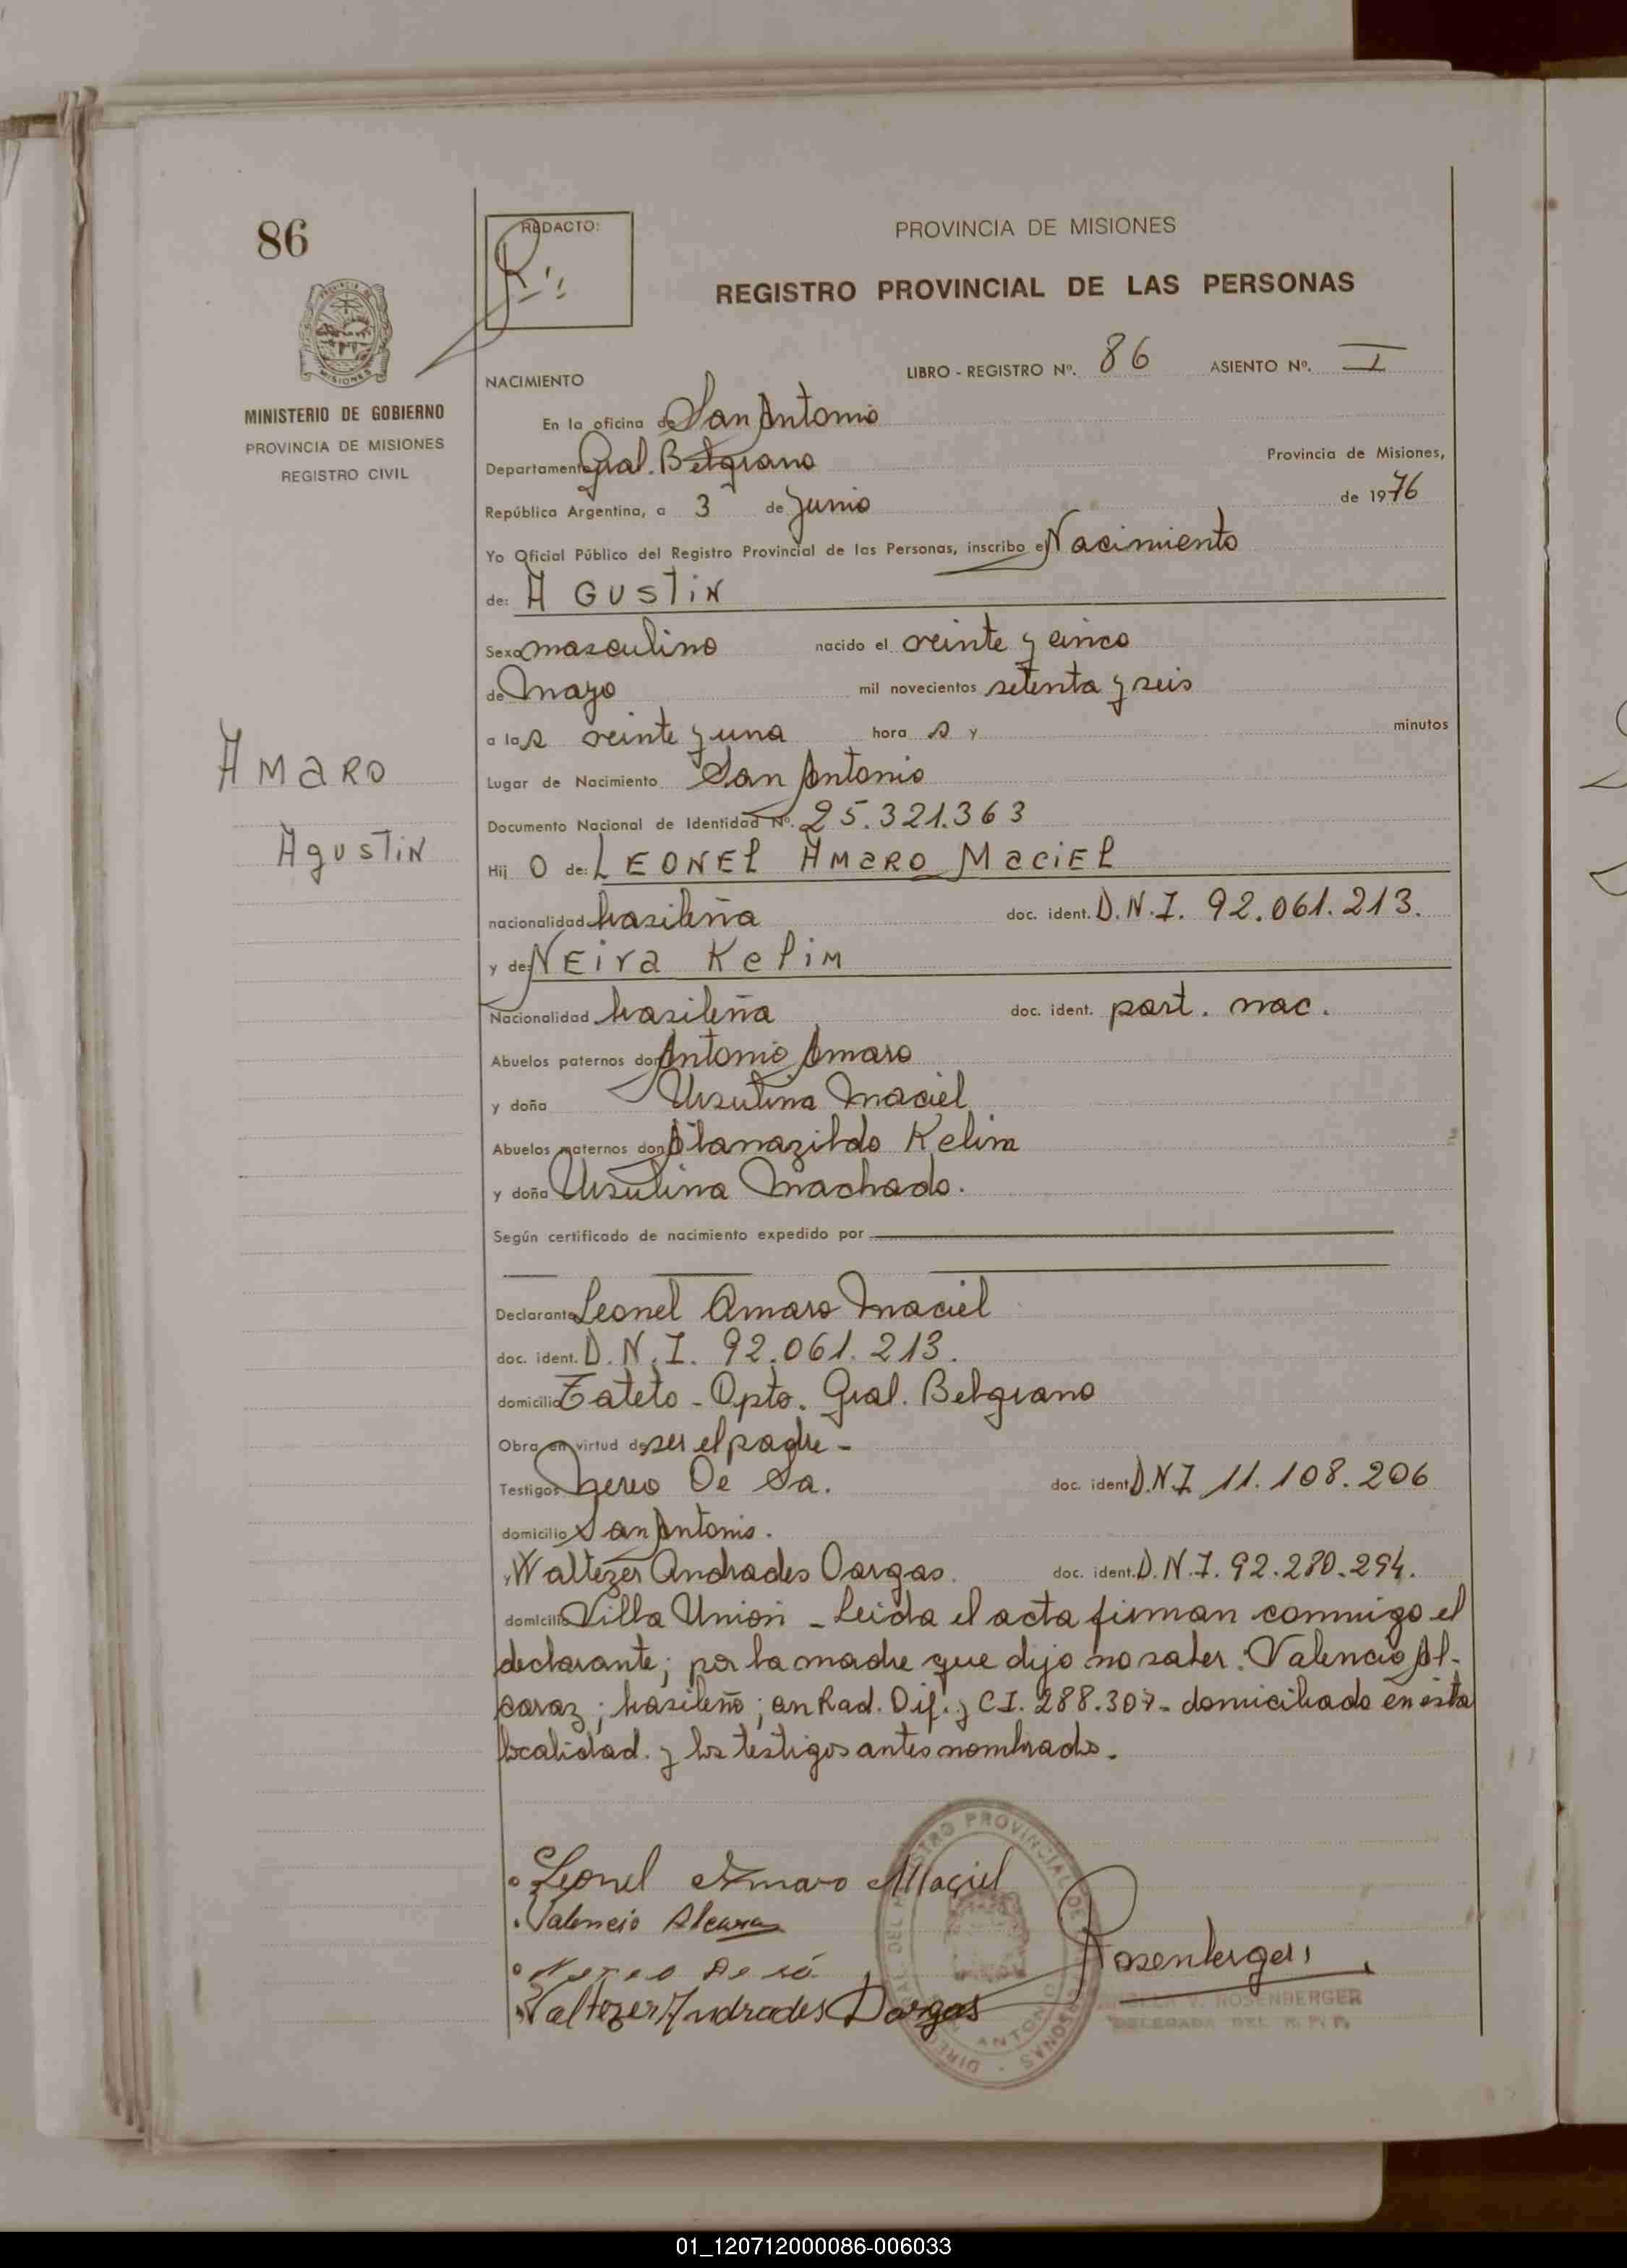 86
REDACTO:
PROVINCIA DE MISIONES
REGISTRO PROVINCIAL DE LAS PERSONAS
NACIMIENTO
LIBRO - REGISTRO Nº. 86 ASIENTO Nº. I
MINISTERIO DE GOBIERNO
PROVINCIA DE MISIONES
REGISTRO CIVIL
En la oficina de San Antonio
Departamento Gral. Belgrano Provincia de Misiones,
República Argentina, a 3 de Junio de 1976
Yo Oficial Público del Registro Provincial de las Personas, inscribo el Nacimiento
de: AGUSTIN
Sexo masculino nacido el veinte y cinco
de Mayo mil novecientos setenta y seis
a las veinte y una horas y minutos
AMARO
Lugar de Nacimiento San Antonio
Documento Nacional de Identidad Nº. 25.321.363
AgusTiN
Hijo de: LEONEL AMARO MACIEL
nacionalidad brasileña doc. ident. D.N.I. 92.061.213.
y de: NEira Kelim
Nacionalidad brasileña doc. ident. part. nac.
Abuelos paternos don Antonio Amaro
y doña Ursulina Maciel
Abuelos maternos don Kelim
y doña Ursulina Machado.
Según certificado de nacimiento expedido por
Declarante Leonel Amaro Maciel
doc. ident. D.N.I. 92.061.213.
domicilio Tateto - Dpto. Gral. Belgrano
Obra en virtud de ser el padre -
Testigos Nereo De Sa. doc. ident. D.N.I. 11.108.206
domicilio San Antonio.
y Waltezer Andrades Vargas. doc. ident. D.N.I. 92.280.294.
domicilio Villa Union - Leida el acta firman conmigo el
declarante; por la madre que dijo no saber: Valencio Al-
caraz; brasileño; an Rad. Dif. y C.I. 288.307 - domiciliado en esta
localidad. y los testigos antes nombrados.
Leonel Amaro Maciel
Valencio Alcaraz
Nereo De sá
Waltezer Andrades Vargas
Rosenberger
V. ROSENBERGER
DELEGADA DEL R. P. P.
01_120712000086-006033